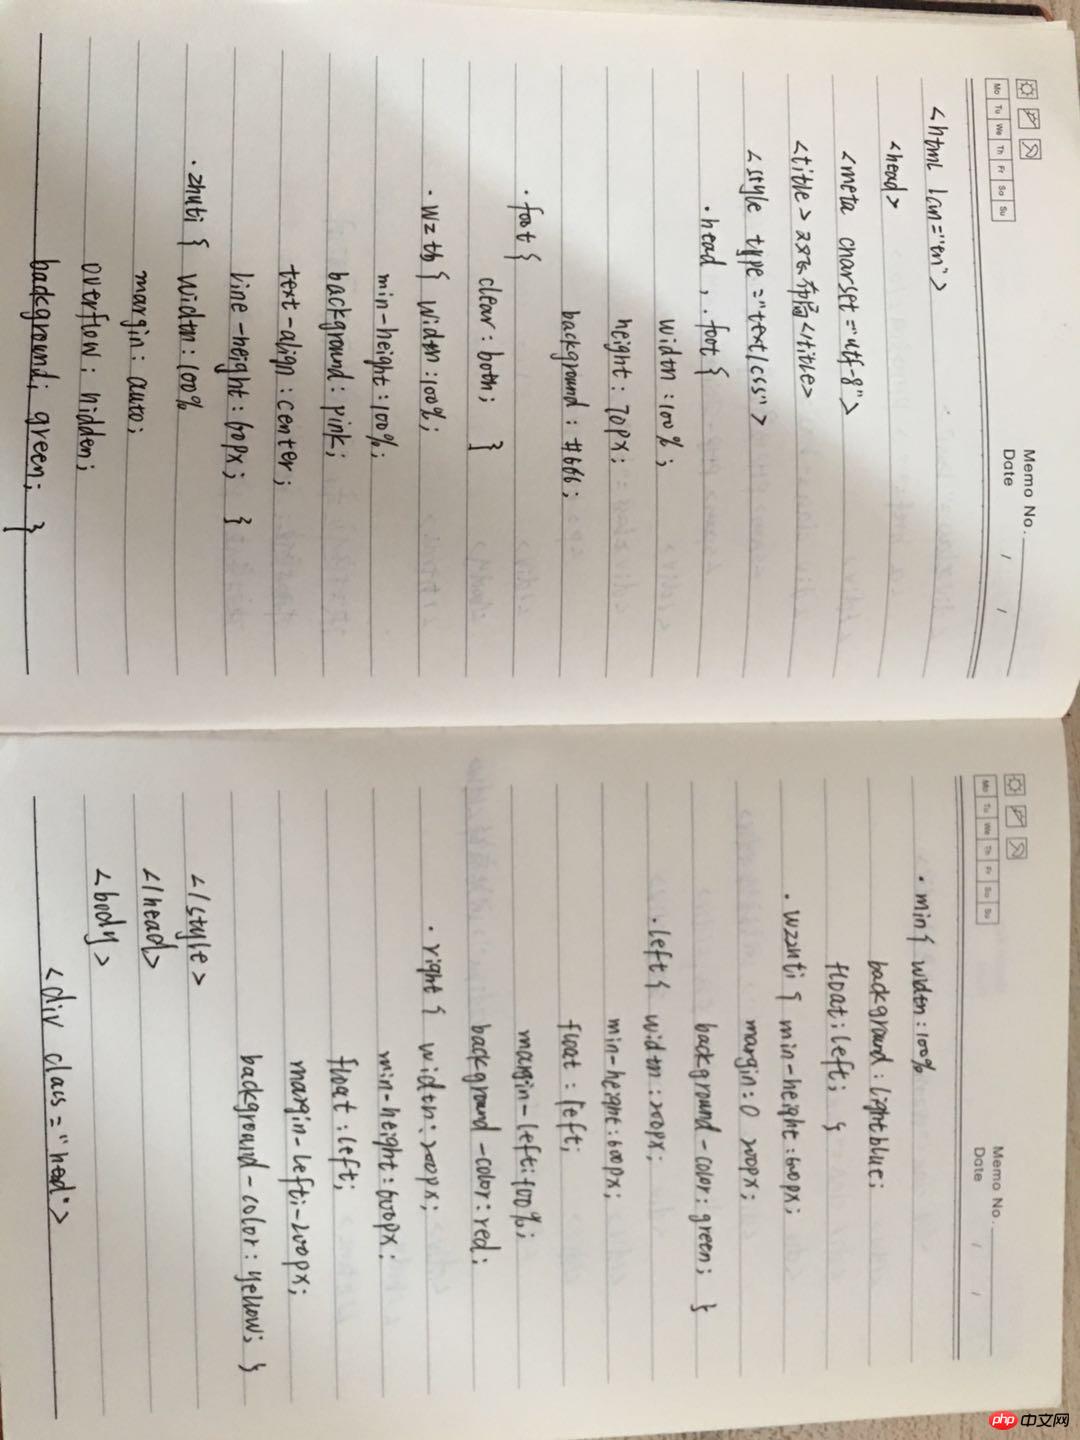 Memo No.
Date / /
Mo Tu We Th Fr Sa Su
<html lan="en">
<head>
<meta charset="utf-8">
<title>双飞布局</title>
<style type="text/css">
.head,.foot{
width:100%;
height:70px;
background:#666;
.foot{
clear:both; }
.wzth{ width:100%;
min-height:100%;
background:pink;
text-align:center;
line-height:60px; }
.zhuti{ width:100%
margin:auto;
overflow:hidden;
background:green; }
Memo No.
Date / /
Mo Tu We Th Fr Sa Su
.min{ width:100%
background:lightblue;
float:left; }
.wzzhti{ min-height:600px;
margin:0 200px;
background-color:green; }
.left{ width:200px;
min-height:600px;
float:left;
margin-left:-100%;
background-color:red;
.right{ width:200px;
min-height:600px;
float:left;
margin-left:-200px;
background-color:yellow; }
</style>
</head>
<body>
<div clas="head">
php 中文网